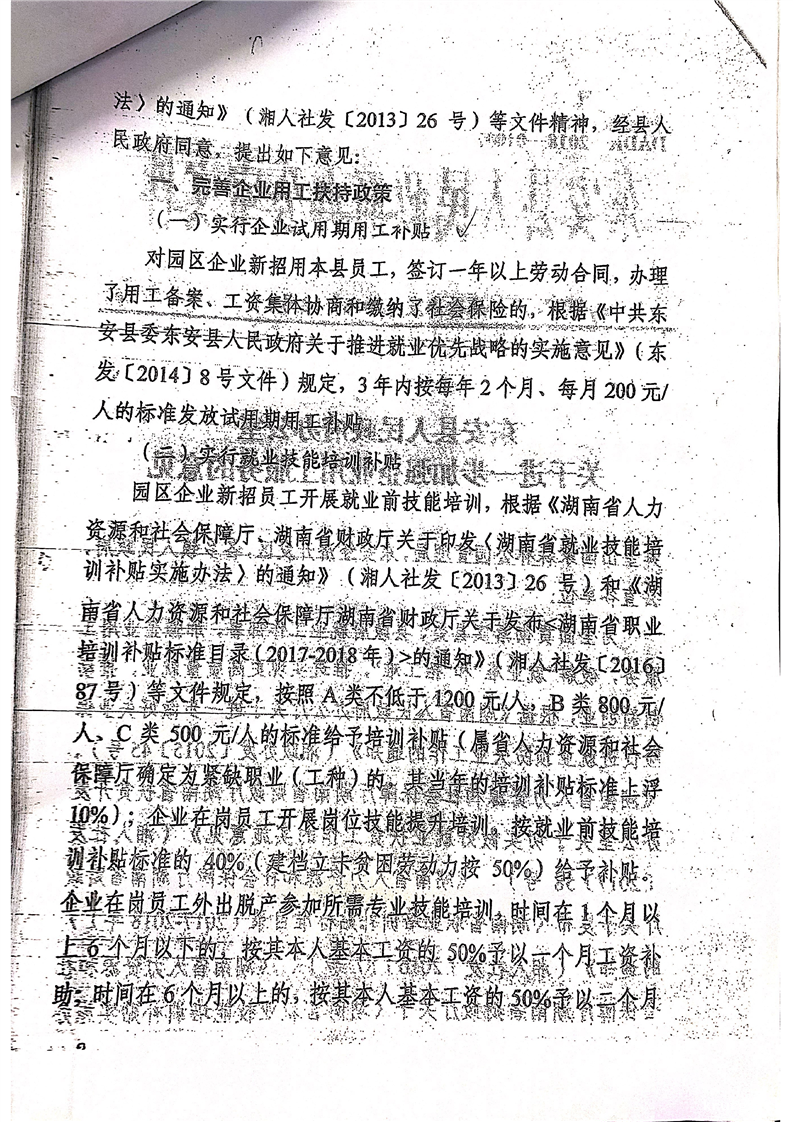 法〉的通知》（湘人社发〔2013〕26 号）等文件精神，经县人
民政府同意，提出如下意见：
一、完善企业用工扶持政策
（一）实行企业试用期用工补贴
对园区企业新招用本县员工，签订一年以上劳动合同，办理
了用工备案、工资集体协商和缴纳了社会保险的，根据《中共东
安县委东安县人民政府关于推进就业优先战略的实施意见》（东
发〔2014〕8 号文件）规定，3 年内按每年 2 个月、每月 200 元/
人的标准发放试用期用工补贴。
（二）实行就业技能培训补贴
园区企业新招员工开展就业前技能培训，根据《湖南省人力
资源和社会保障厅、湖南省财政厅关于印发〈湖南省就业技能培
训补贴实施办法〉的通知》（湘人社发〔2013〕26 号）和《湖
南省人力资源和社会保障厅湖南省财政厅关于发布<湖南省职业
培训补贴标准目录（2017-2018 年）>的通知》（湘人社发〔2016〕
87 号）等文件规定，按照 A 类不低于 1200 元/人，B 类 800 元/
人、C 类 500 元/人的标准给予培训补贴（属省人力资源和社会
保障厅确定为紧缺职业（工种）的，其当年的培训补贴标准上浮
10%）；企业在岗员工开展岗位技能提升培训，按就业前技能培
训补贴标准的 40%（建档立卡贫困劳动力按 50%）给予补贴。
企业在岗员工外出脱产参加所需专业技能培训，时间在 1 个月以
上 6 个月以下的，按其本人基本工资的 50%予以一个月工资补
助；时间在 6 个月以上的，按其本人基本工资的 50%予以三个月